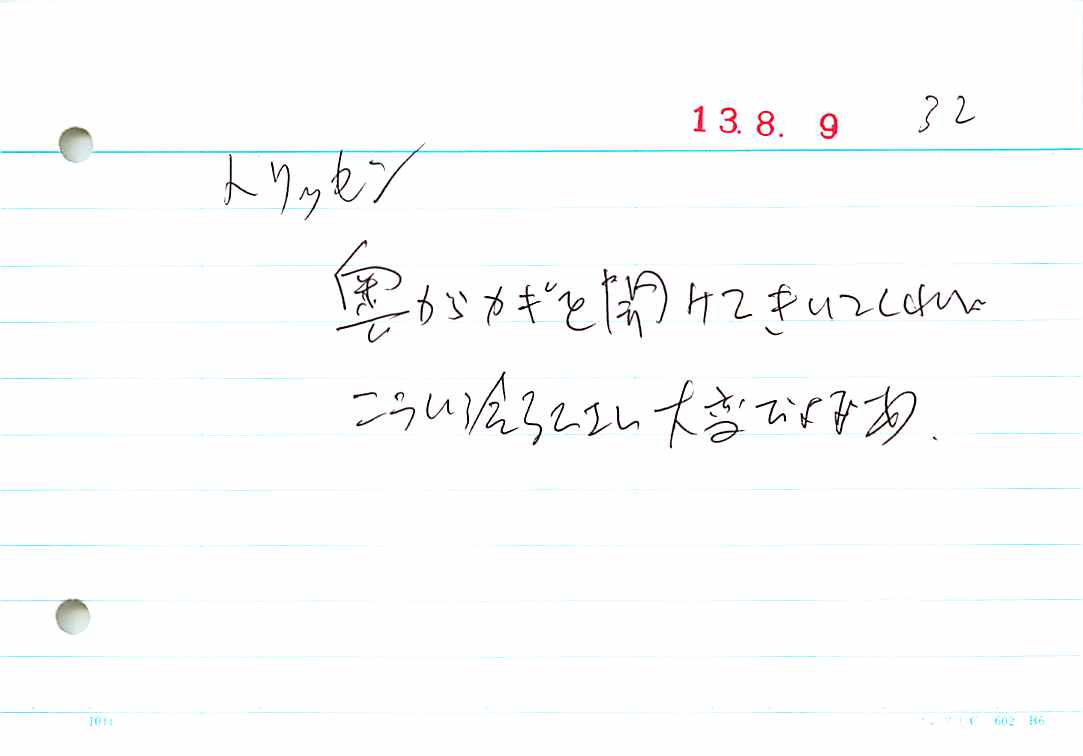 13.8.9 32
トリッセン
奥からカギを開けてきいてくれない
こういう えい大変だよなあ.
602 B6